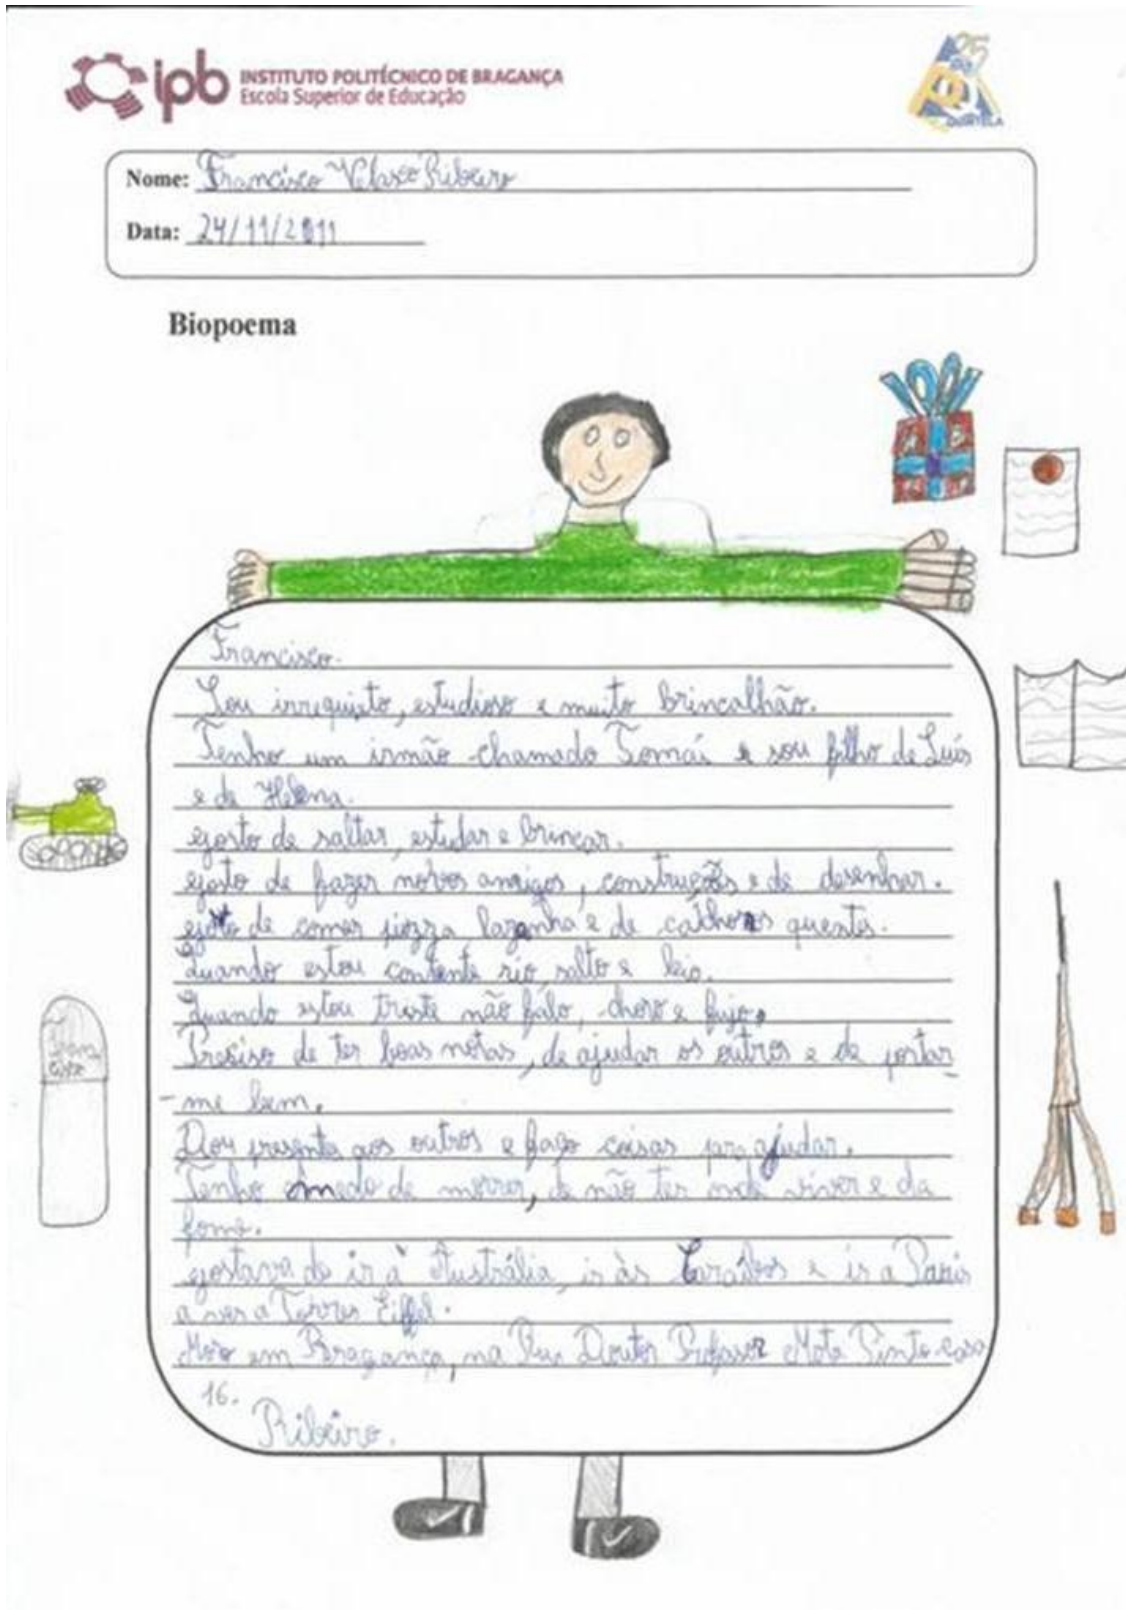 ipb INSTITUTO POLITÉCNICO DE BRAGANÇA
Escola Superior de Educação
25
QUINTELA
Nome: Francisco Velasco Ribeiro
Data: 24/11/2011
Biopoema
Francisco.
Sou irrequito, estudioso e muito brincalhão.
Tenho um irmão chamado Tomái e sou filho de Luís
e da Helena.
gosto de saltar, estudar e brincar.
gosto de fazer novos amigos, construções e de desenhar.
gosto de comer pizza, lazanha e de cachorros quentes.
Quando estou contente rio, salto e leio.
Quando estou triste não falo, choro e fujo.
Presiso de ter boas notas, de ajudar os outros e de portar
-me bem.
Dou presente aos outros e faço coisas pra ajudar.
Tenho medo de morrer, de não ter onde viver e da
fome.
gostava de ir à Austrália, ir às Caraíbas e ir a Paris
a ver a Torres Eiffel.
Moro em Bragança, na Rua Doutor Professor Mota Pinto casa
16.
Ribeiro.
Fran
cisco